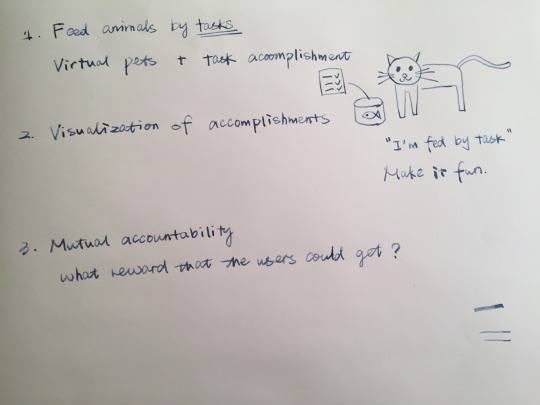 1. Feed animals by tasks
Virtual pets + task accomplishment
2. Visualization of accomplishments
"I'm fed by task"
Make it fun.
3. Mutual accountability
what reward that the users could get ?